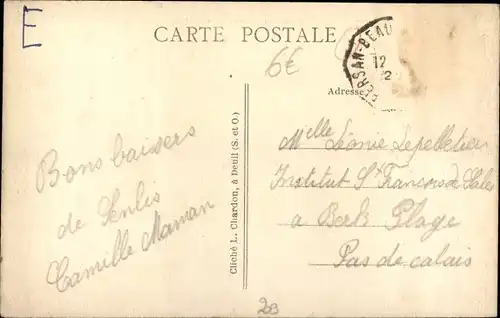 E
CARTE POSTALE
6€
PERSAN-BEAU
12
Adresse
Bons baisers
de Senlis
Camille Maman
Cliché L. Chardon, à Deuil (S. et O.)
Melle Léonie Lepelletier
Institut St Francois de Sales
a Berk Plage
Pas de calais